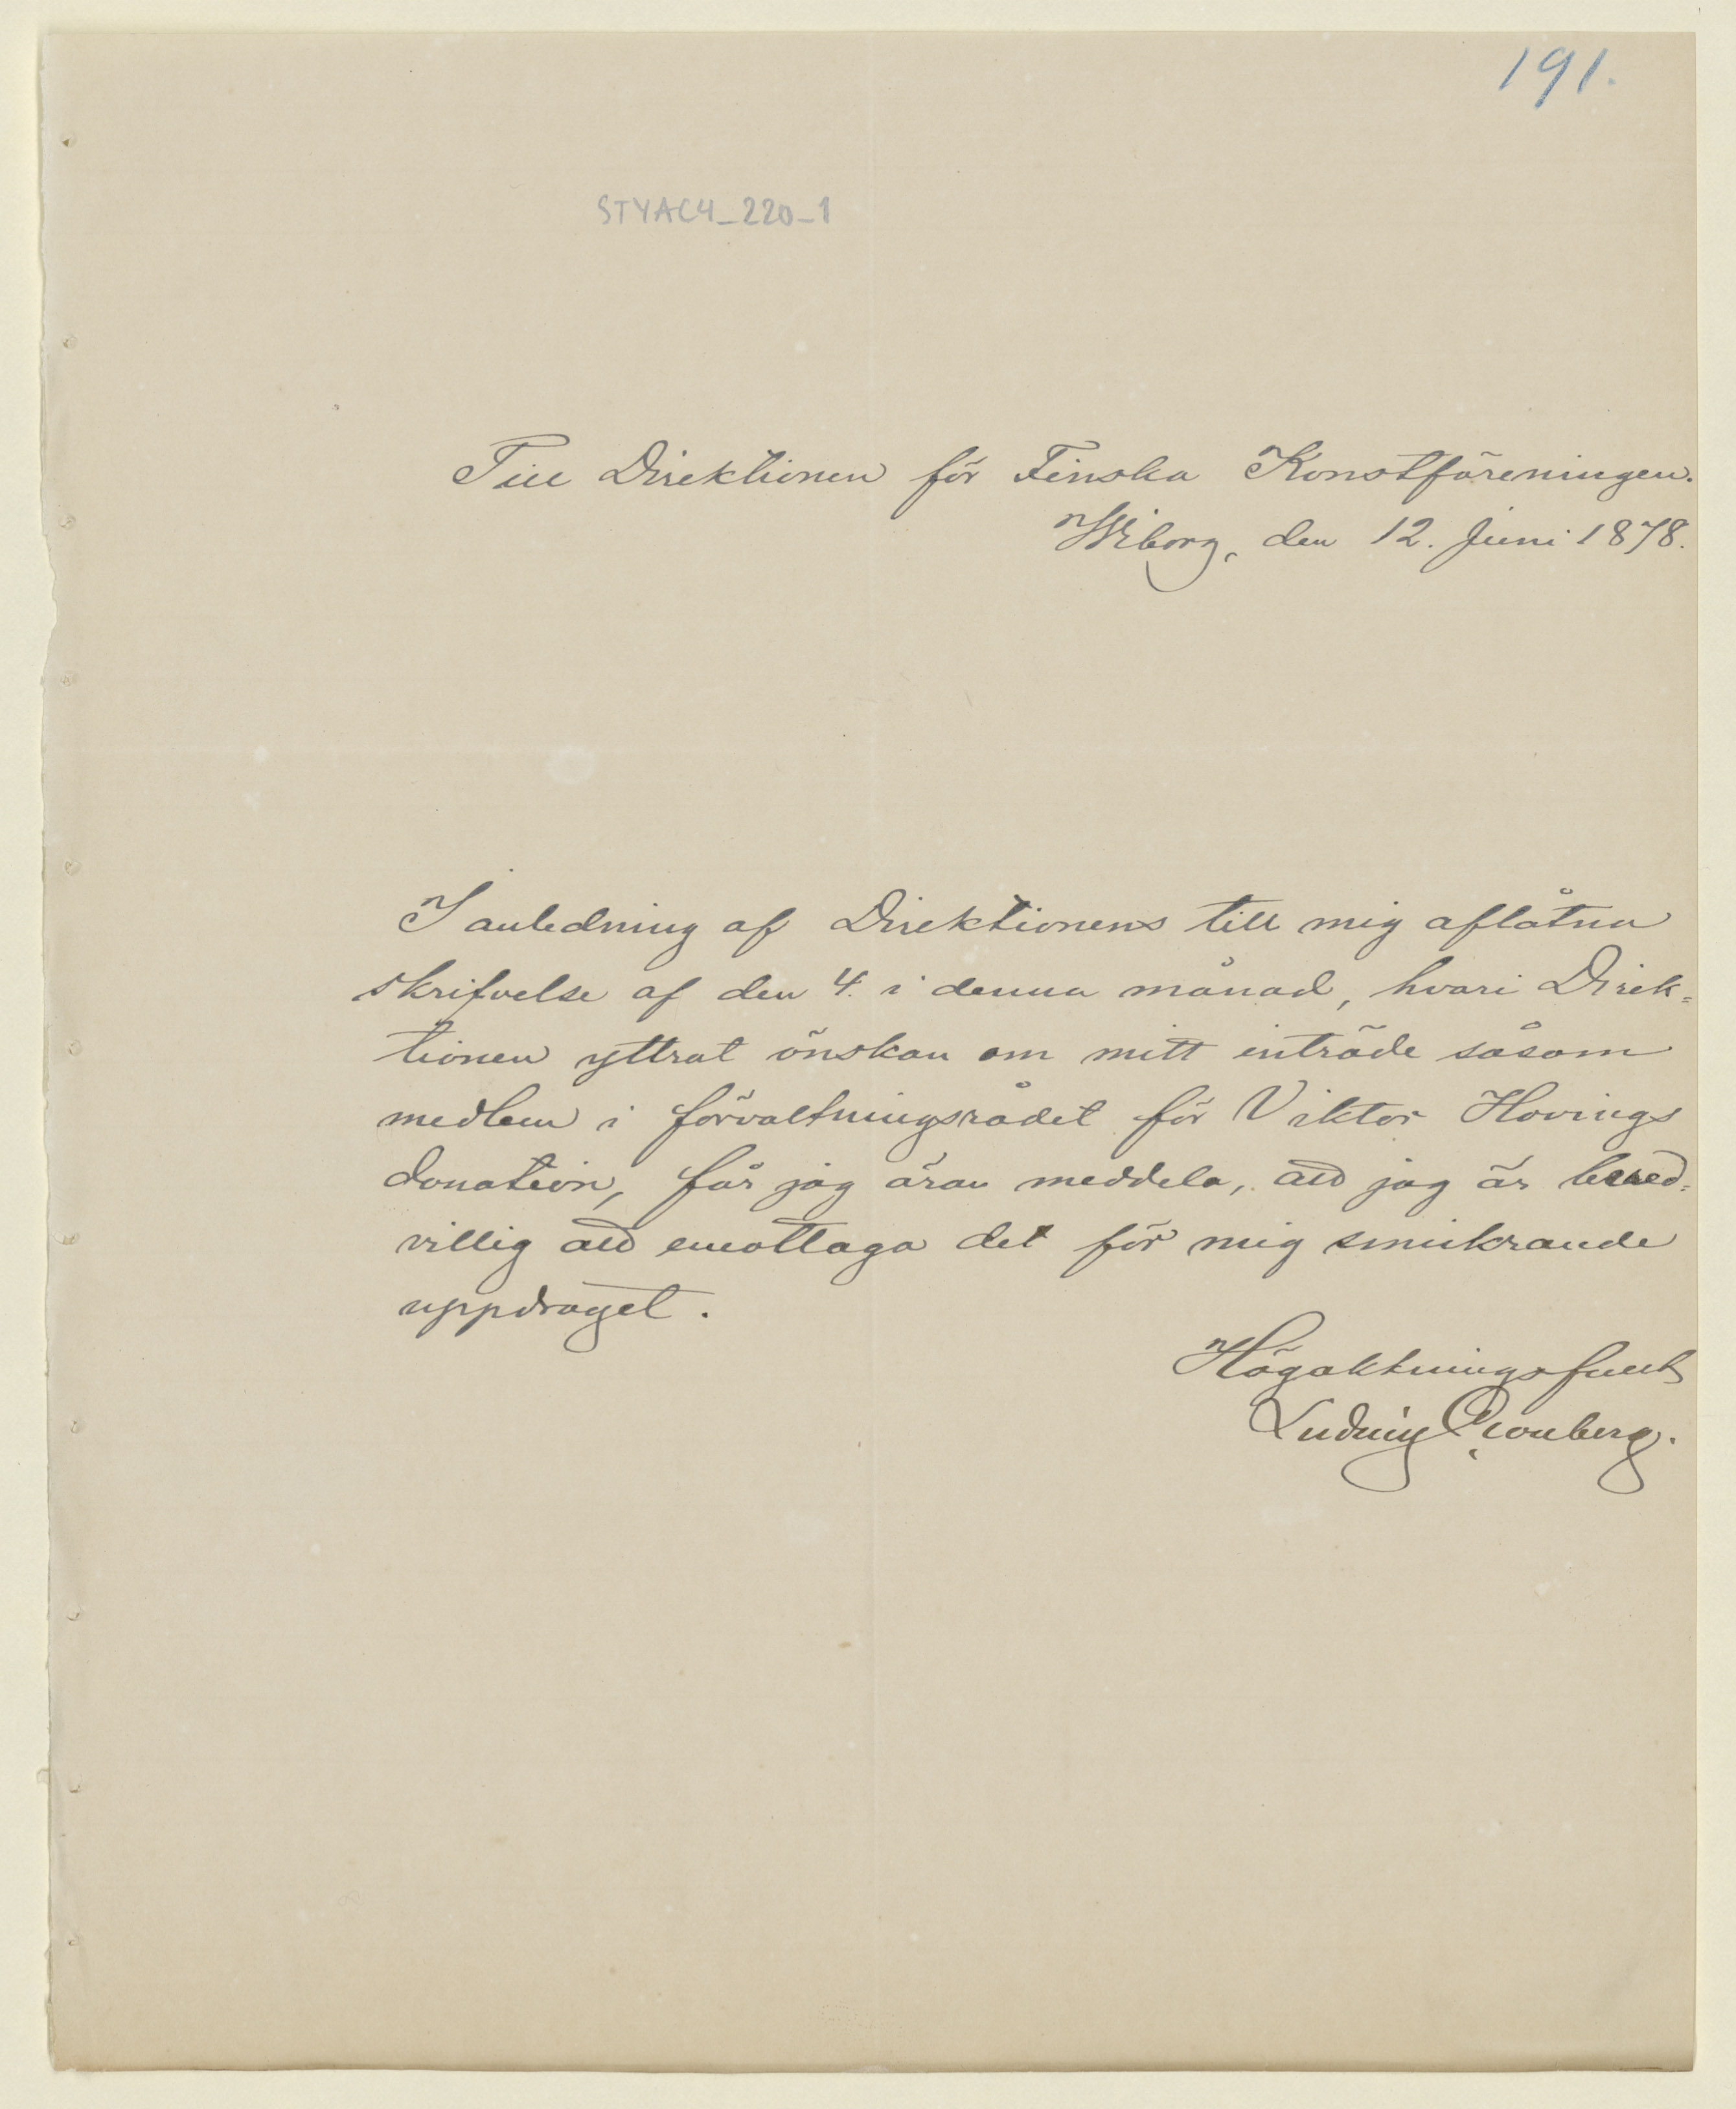 191.
STYAC4_220_1
Till Direktionen för Finska Konstföreningen.
Wiborg, den 12. Juni 1878.
I anledning af Direktionens till mig aflåtna
skrifvelse af den 4. i denna månad, hvari Direk=
tionen yttrat önskan om mitt inträde såsom
medlem i förvaltningsrådet för Viktor Hovings
donation, får jag äran meddela, att jag är bered=
villig att emottaga det för mig smickrande
uppdraget.
Högaktningsfullt
Ludvig Cronberg.